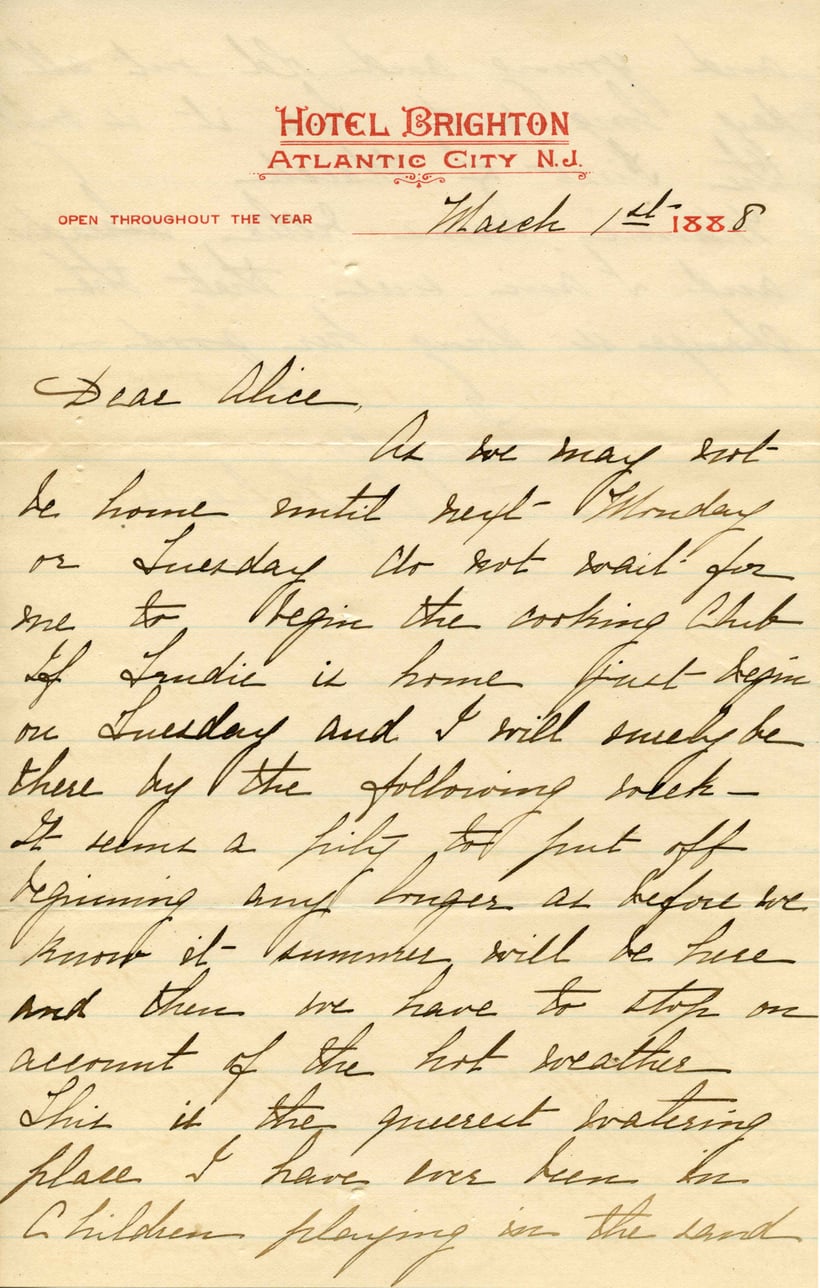 HOTEL BRIGHTON
ATLANTIC CITY N.J.
OPEN THROUGHOUT THE YEAR March 1st 1888
Dear Alice,
As we may not
be home until next Monday
or Tuesday do not wait for
me to begin the cooking Club
If Trudie is home just begin
on Tuesday and I will surely be
there by the following week —
It seems a pity to put off
beginning any longer as before we
know it summer will be here
and then we have to stop on
account of the hot weather
This is the queerest watering
place I have ever been in
Children playing in the sand